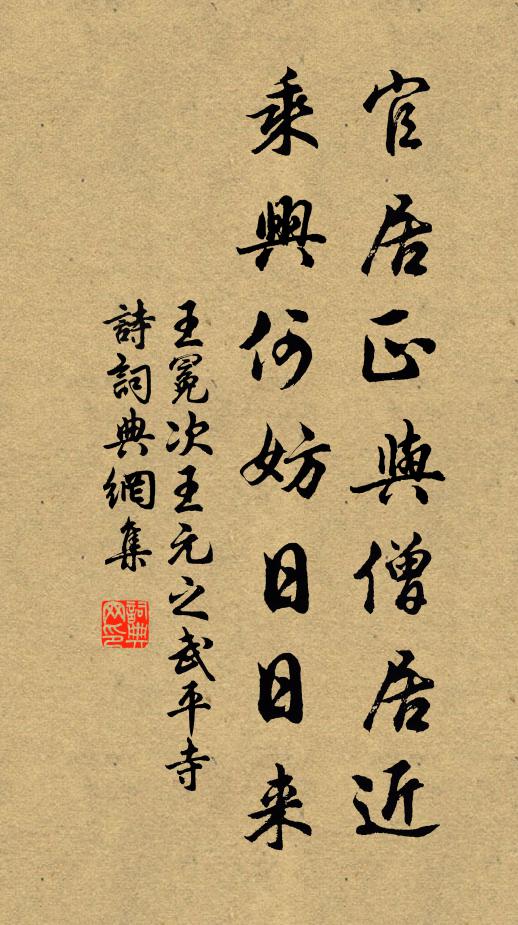 官居正與僧居近
乘興何妨日日来
王冕次王元之武平寺
詩詞典網集
詞典网印